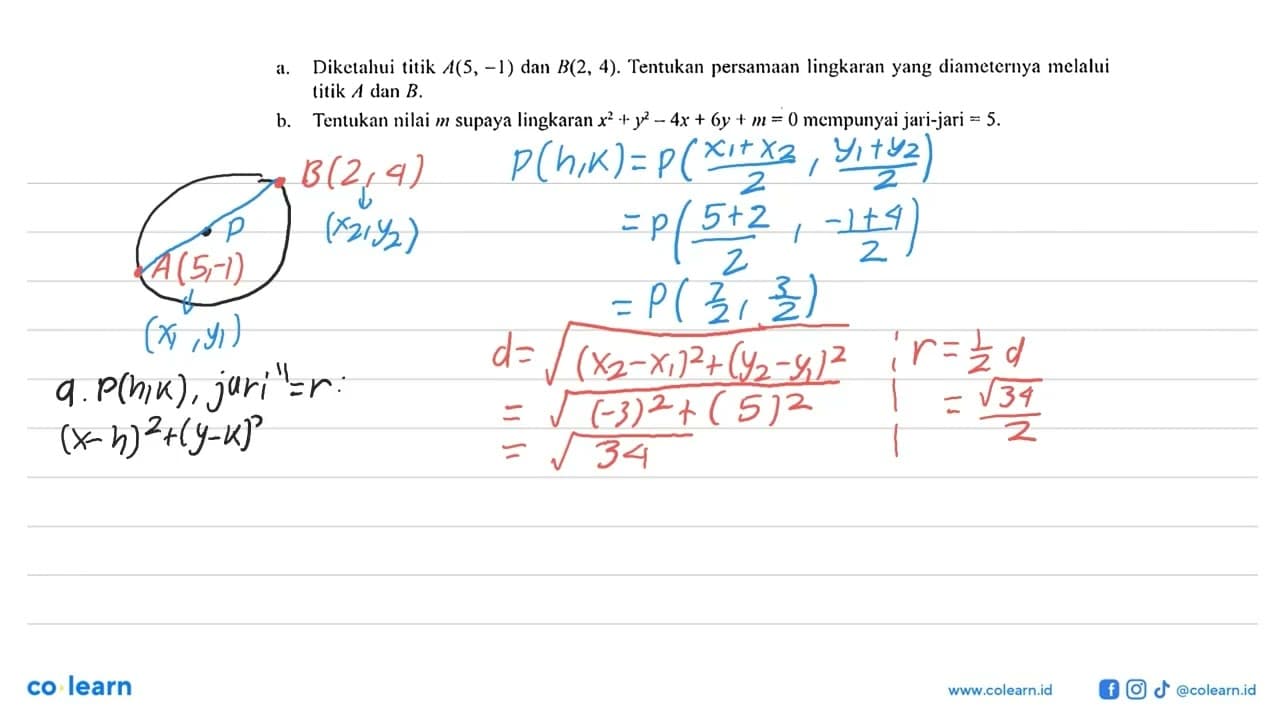 a. Diketahui titik A(5, −1) dan B(2, 4). Tentukan persamaan lingkaran yang diameternya melalui
titik A dan B.
b. Tentukan nilai m supaya lingkaran x² + y² − 4x + 6y + m = 0 mempunyai jari-jari = 5.
B(2,4)
(x₂,y₂)
P
A(5,-1)
(x₁,y₁)
a. P(h,k), jari"=r:
(x-h)²+(y-k)²
P(h,k)=P(x₁+x₂/2, y₁+y₂/2)
=P(5+2/2, -1+4/2)
=P(7/2, 3/2)
d=√(x₂-x₁)²+(y₂-y₁)²
=√(-3)²+(5)²
=√34
r=1/2 d
=√34/2
co learn
www.colearn.id
@colearn.id